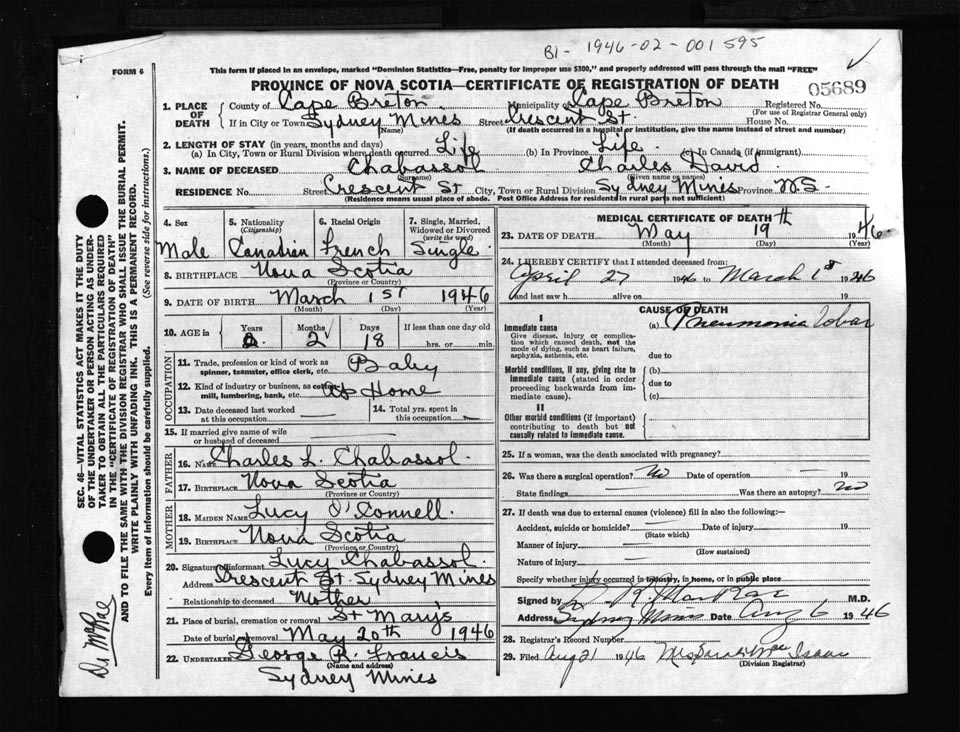 B1- 1946-02-001595
FORM 6
This form if placed in an envelope, marked "Dominion Statistics—Free, penalty for improper use $300," and properly addressed will pass through the mail "FREE"
PROVINCE OF NOVA SCOTIA—CERTIFICATE OF REGISTRATION OF DEATH
05689
1. PLACE OF DEATH County of Cape Breton Municipality of Cape Breton Registered No.
(For use of Registrar General only)
If in City or Town Sydney Mines Street Crescent St. House No.
(Name) (If death occurred in a hospital or institution, give the name instead of street and number)
2. LENGTH OF STAY (in years, months and days)
(a) In City, Town or Rural Division where death occurred Life (b) In Province Life (c) In Canada (if immigrant)
3. NAME OF DECEASED Chabassol Charles David
(Surname) (Given name or names)
RESIDENCE No. Street Crescent St City, Town or Rural Division Sydney Mines Province N.S.
(Residence means usual place of abode. Post Office Address for residents in rural parts not sufficient)
4. Sex 5. Nationality (Citizenship) 6. Racial Origin 7. Single, Married, Widowed or Divorced (write the word)
Male Canadian French Single
8. BIRTHPLACE Nova Scotia
(Province or Country)
9. DATE OF BIRTH March 1st 1946
(Month) (Day) (Year)
10. AGE in Years Months Days If less than one day old
2 18 hrs. or min.
OCCUPATION
11. Trade, profession or kind of work as spinner, teamster, office clerk, etc. Baby
12. Kind of industry or business, as cotton mill, lumbering, bank, etc. At Home
13. Date deceased last worked at this occupation
14. Total yrs. spent in this occupation
15. If married give name of wife or husband of deceased
FATHER
16. Name Charles L. Chabassol.
17. Birthplace Nova Scotia
(Province or Country)
MOTHER
18. Maiden Name Lucy O'Connell.
19. Birthplace Nova Scotia
(Province or Country)
20. Signature of informant Lucy Chabassol.
Address Crescent St. Sydney Mines
Relationship to deceased Mother
21. Place of burial, cremation or removal St Mary's
Date of burial or removal May 20th 1946
22. Undertaker George R. Francis
(Name and address)
Sydney Mines
MEDICAL CERTIFICATE OF DEATH
23. DATE OF DEATH May 19th 1946
(Month) (Day) (Year)
24. I HEREBY CERTIFY that I attended deceased from:
April 27 1946 to March 1st 1946
and last saw h alive on 19
CAUSE OF DEATH
I
Immediate cause
Give disease, injury or complication which caused death, not the mode of dying, such as heart failure, asphyxia, asthenia, etc.
(a) Pneumonia Lobar
due to
Morbid conditions, if any, giving rise to immediate cause (stated in order proceeding backwards from immediate cause).
(b)
due to
(c)
II
Other morbid conditions (if important) contributing to death but not causally related to immediate cause.
25. If a woman, was the death associated with pregnancy?
26. Was there a surgical operation? No Date of operation 19
State findings Was there an autopsy? No
27. If death was due to external causes (violence) fill in also the following:—
Accident, suicide or homicide? Date of injury 19
(State which)
Manner of injury
(How sustained)
Nature of injury
Specify whether injury occurred in industry, in home, or in public place
Signed by M.D.
Address Sydney Mines Date Aug 6 1946
28. Registrar's Record Number
29. Filed Aug 21 1946 Mrs Sarah MacIsaac
(Division Registrar)
SEC. 46—VITAL STATISTICS ACT MAKES IT THE DUTY
OF THE UNDERTAKER OR PERSON ACTING AS UNDER-
TAKER TO OBTAIN ALL THE PARTICULARS REQUIRED
IN THE "CERTIFICATE OF REGISTRATION OF DEATH"
AND TO FILE THE SAME WITH THE DIVISION REGISTRAR WHO SHALL ISSUE THE BURIAL PERMIT.
WRITE PLAINLY WITH UNFADING INK. THIS IS A PERMANENT RECORD.
Every item of information should be carefully supplied. (See reverse side for instructions.)
Dr McRae